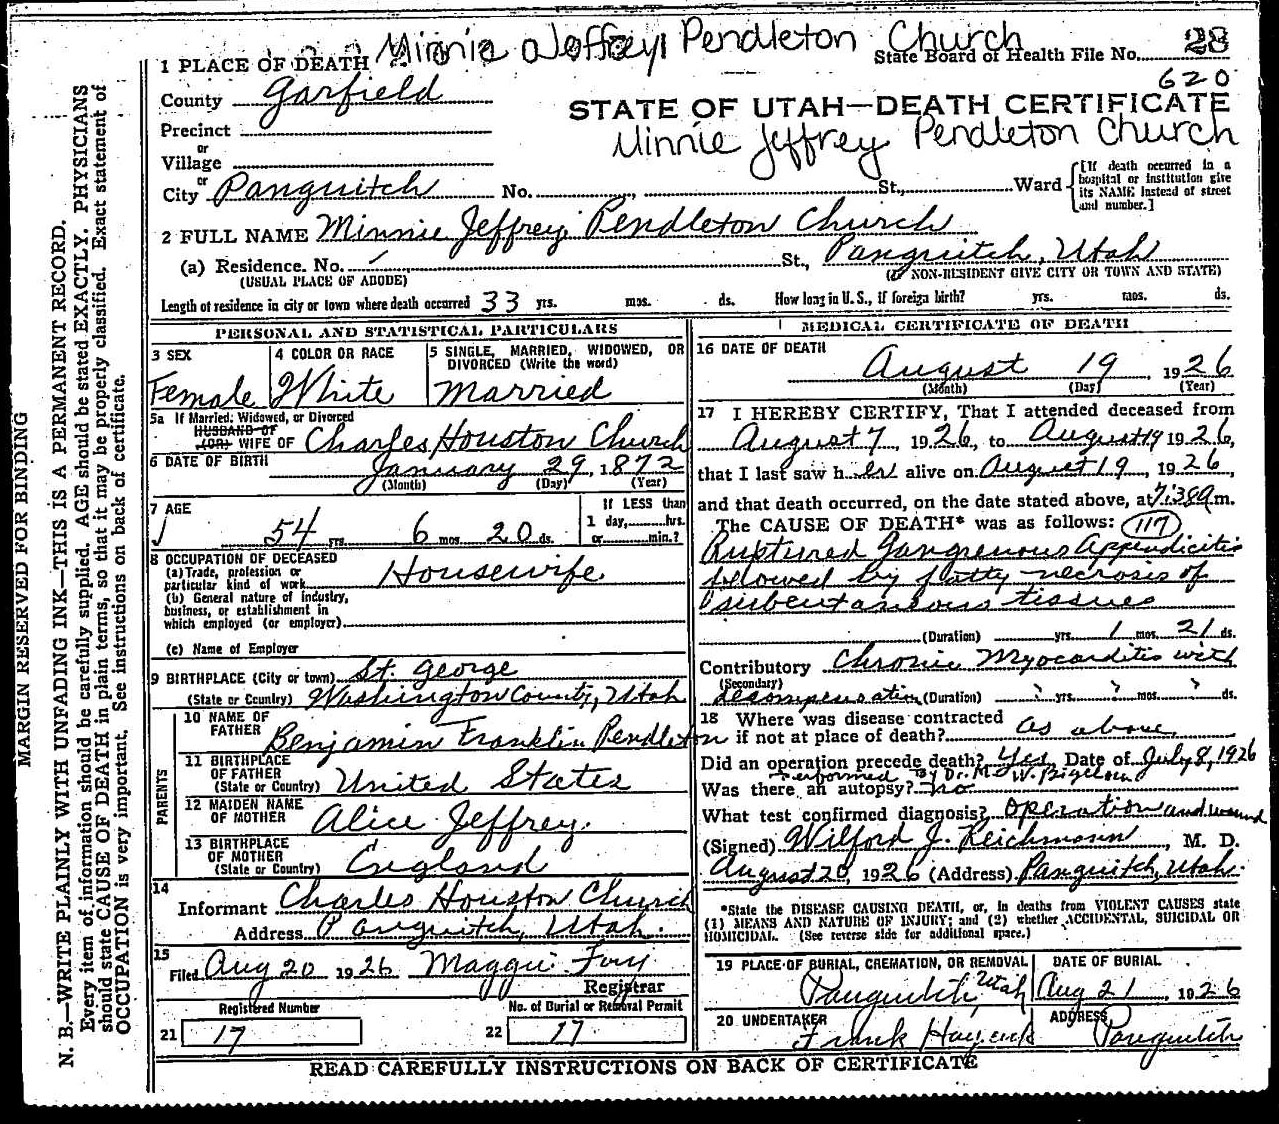 Minnie Jeffrey Pendleton Church
State Board of Health File No. 28
620
1 PLACE OF DEATH
County Garfield
STATE OF UTAH—DEATH CERTIFICATE
Minnie Jeffrey Pendleton Church
Precinct
or
Village
or
City Panguitch No. , St., Ward
[If death occurred in a hospital or institution give its NAME instead of street and number.]
2 FULL NAME Minnie Jeffrey Pendleton Church
(a) Residence. No. St., Panguitch, Utah
(USUAL PLACE OF ABODE) (If NON-RESIDENT GIVE CITY OR TOWN AND STATE)
Length of residence in city or town where death occurred 33 yrs. mos. ds. How long in U. S., if foreign birth? yrs. mos. ds.
PERSONAL AND STATISTICAL PARTICULARS
3 SEX
Female
4 COLOR OR RACE
White
5 SINGLE, MARRIED, WIDOWED, OR
DIVORCED (Write the word)
Married
5a If Married, Widowed, or Divorced
HUSBAND OF
(OR) WIFE OF Charles Houston Church
6 DATE OF BIRTH January 29, 1872
(Month) (Day) (Year)
7 AGE
54 yrs. 6 mos. 20 ds.
If LESS than
1 day, hrs.
or min.?
8 OCCUPATION OF DECEASED
(a) Trade, profession or
particular kind of work Housewife
(b) General nature of industry,
business, or establishment in
which employed (or employer)
(c) Name of Employer
9 BIRTHPLACE (City or town) St. George
(State or Country) Washington County, Utah
PARENTS
10 NAME OF
FATHER Benjamin Franklin Pendleton
11 BIRTHPLACE
OF FATHER
(State or Country) United States
12 MAIDEN NAME
OF MOTHER Alice Jeffrey.
13 BIRTHPLACE
OF MOTHER
(State or Country) England
14
Informant Charles Houston Church
Address Panguitch, Utah.
15
Filed Aug 20 1926 Maggie
Registrar
Registered Number
21 17
No. of Burial or Removal Permit
22 17
MEDICAL CERTIFICATE OF DEATH
16 DATE OF DEATH
August 19 1926
(Month) (Day) (Year)
17 I HEREBY CERTIFY, That I attended deceased from
August 7, 1926, to August 19 1926,
that I last saw her alive on August 19, 1926,
and that death occurred, on the date stated above, at 7:38 a m.
The CAUSE OF DEATH* was as follows: 117
Ruptured Gangrenous Appendicitis
followed by fatty necrosis of
subcutaneous tissues
(Duration) yrs. 1 mos. 21 ds.
Contributory Chronic Myocarditis with
(Secondary)
decompensation (Duration) ? yrs. ? mos. ? ds.
18 Where was disease contracted
if not at place of death? as above
Did an operation precede death? Yes Date of July 8, 1926
Performed By Dr. M. W. Bigelow
Was there an autopsy? no
What test confirmed diagnosis? Operation and wound
(Signed) Wilford J. Reichmann, M. D.
August 20, 1926 (Address) Panguitch, Utah.
*State the DISEASE CAUSING DEATH, or, in deaths from VIOLENT CAUSES state
(1) MEANS AND NATURE OF INJURY; and (2) whether ACCIDENTAL, SUICIDAL OR
HOMICIDAL. (See reverse side for additional space.)
19 PLACE OF BURIAL, CREMATION, OR REMOVAL
Panguitch, Utah
DATE OF BURIAL
Aug 21, 1926
20 UNDERTAKER
Frank
ADDRESS
Panguitch
READ CAREFULLY INSTRUCTIONS ON BACK OF CERTIFICATE
MARGIN RESERVED FOR BINDING
N. B.—WRITE PLAINLY WITH UNFADING INK—THIS IS A PERMANENT RECORD.
Every item of information should be carefully supplied. AGE should be stated EXACTLY. PHYSICIANS
should state CAUSE OF DEATH in plain terms, so that it may be properly classified. Exact statement of
OCCUPATION is very important. See instructions on back of certificate.